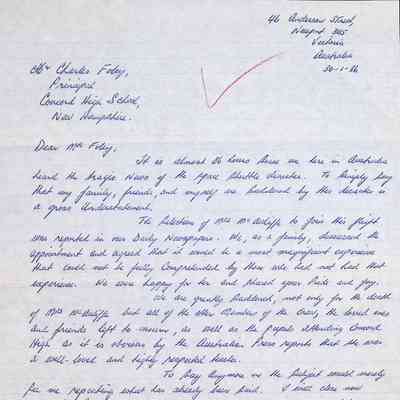 46 Anderson Street,
Newport 3015
Victoria
Australia
30-1-86
Mr Charles Foley,
Principal
Concord High School,
New Hampshire.
Dear Mr Foley,
It is almost 36 hours since we here in Australia
heard the tragic News of the space shuttle disaster. To simply say
that my family, friends, and myself are saddened by this disaster is
a gross understatement.
The selection of Mrs McAuliffe to join this flight
was reported in our Daily Newspapers. We, as a family, discussed the
appointment and agreed that it would be a most magnificent experience
that could not be fully comprehended by those who had not had that
experience. We were happy for her and shared your Pride and joy.
We are greatly saddened, not only for the death
of Mrs McAuliffe but all of the other members of the crew, the loved ones
and friends left to mourn, as well as the pupils attending Concord
High as it is obvious by the Australian Press reports that she was
a well-loved and highly respected teacher.
To say anymore on the subject would merely
be me repeating what has already been said. I will close now